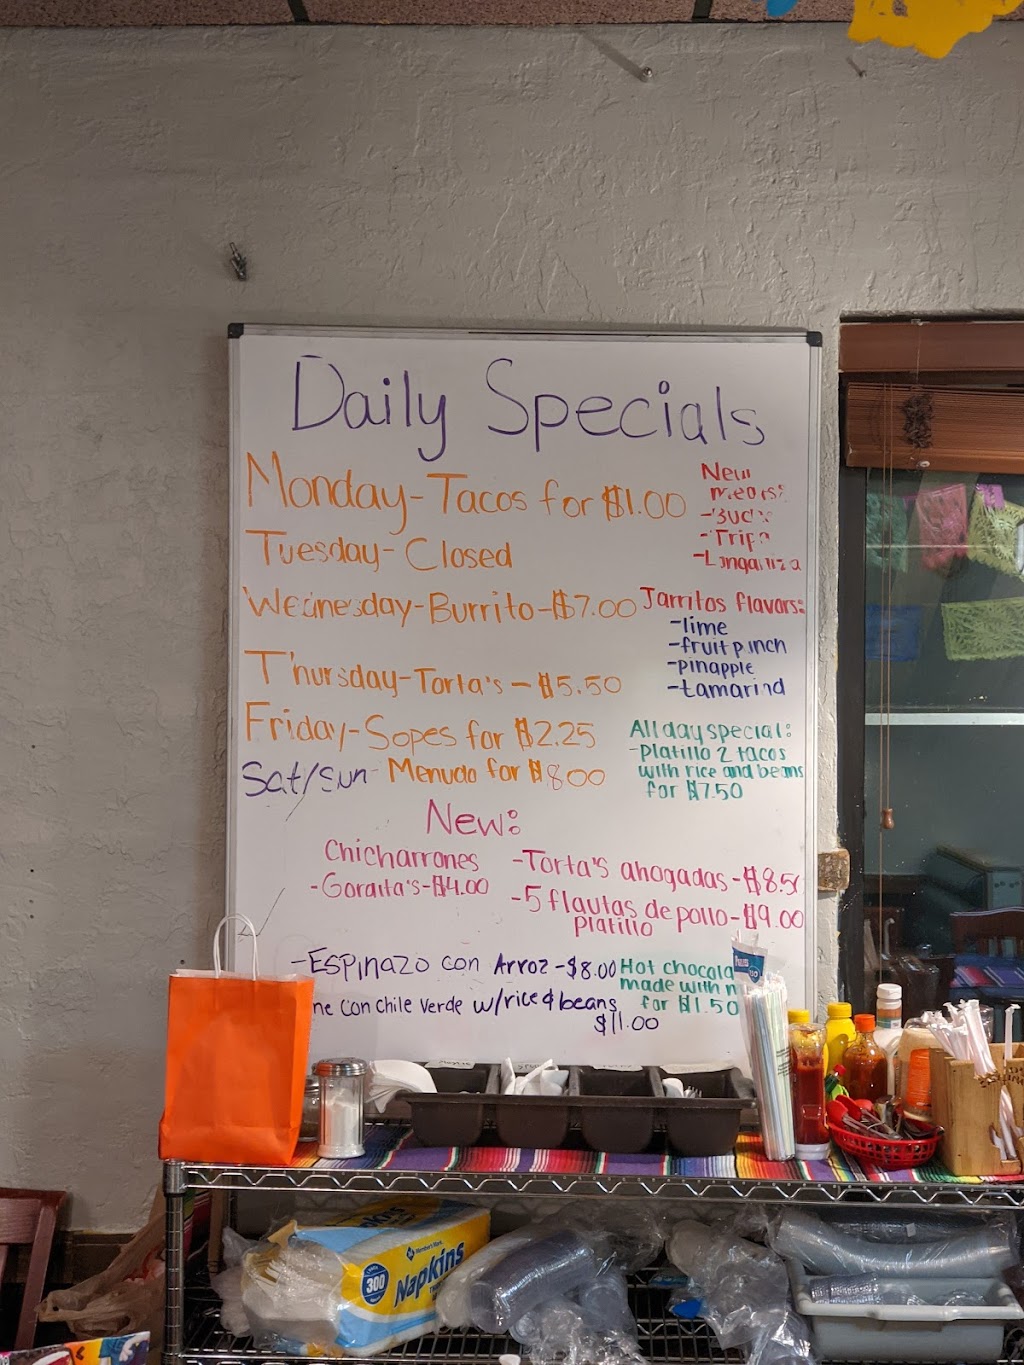 Daily Specials
Monday-Tacos for $1.00
Tuesday-Closed
Wednesday-Burrito-$7.00
Thursday-Torta's-$5.50
Friday-Sopes for $2.25
Sat/Sun-Menudo for $8.00
New
meats:
-Buche
-Tripa
-Longaniza
Jarritos flavors:
-lime
-fruit punch
-pinapple
-tamarind
All day special:
-platillo 2 tacos
with rice and beans
for $7.50
New:
Chicharrones
-Gordita's-$4.00
-Torta's ahogadas-$8.50
-5 flautas de pollo-$9.00
platillo
-Espinazo con Arroz-$8.00
con chile verde w/rice & beans
$11.00
Hot chocola
made with
for $1.50
Member's Mark
Napkins
300